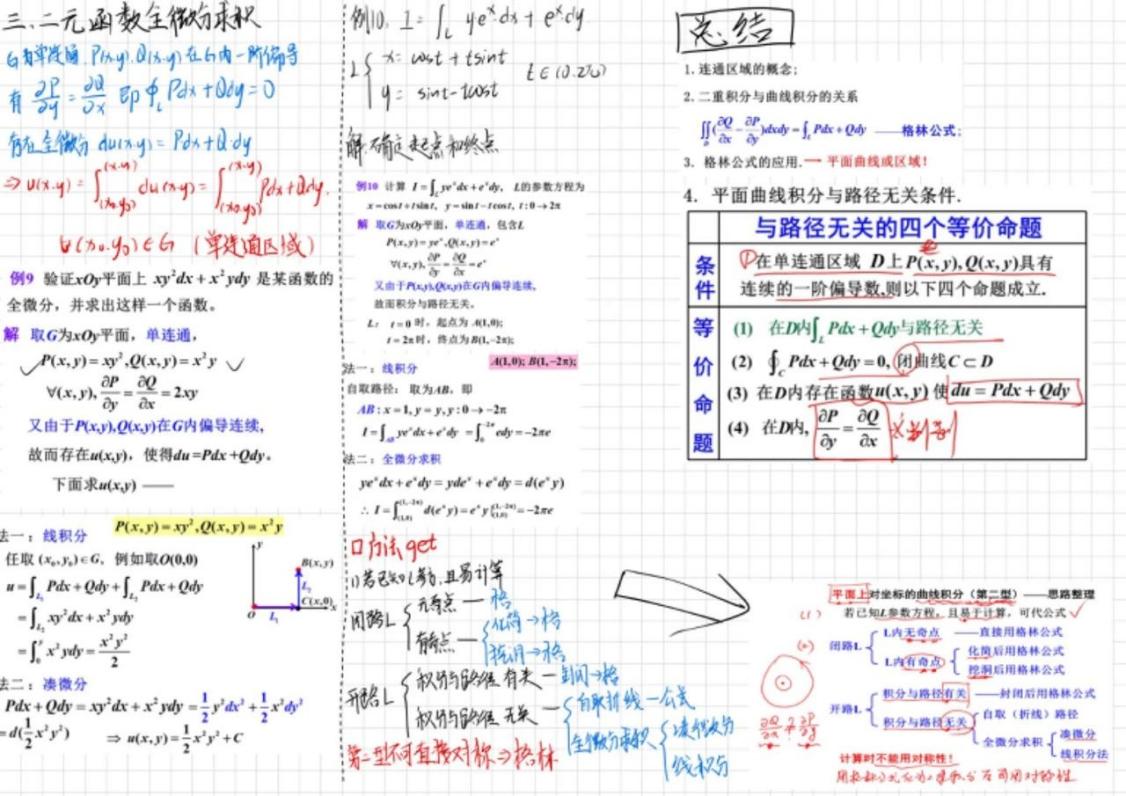 三、二元函数全微分求积
G为单连通. P(x,y). Q(x,y)在G内一阶偏导
有 ∂P/∂y = ∂Q/∂x 即 ∮_L Pdx+Qdy=0
存在全微分 du(x,y)= Pdx+Qdy
⇒ u(x,y)= ∫_(x₀,y₀)^(x,y) du(x,y)= ∫_(x₀,y₀)^(x,y) Pdx+Qdy.
∀(x₀,y₀)∈G (单连通区域)
例9 验证xOy平面上 xy²dx+x²ydy 是某函数的
全微分，并求出这样一个函数。
解 取G为xOy平面，单连通，
P(x,y)=xy²,Q(x,y)=x²y
∀(x,y), ∂P/∂y=∂Q/∂x=2xy
又由于P(x,y),Q(x,y)在G内偏导连续,
故而存在u(x,y)，使得du=Pdx+Qdy。
下面求u(x,y) ——
P(x,y)=xy²,Q(x,y)=x²y
法一：线积分
任取 (x₀,y₀)∈G，例如取O(0,0)
u=∫_L₁ Pdx+Qdy+∫_L₂ Pdx+Qdy
=∫_L₂ xy²dx+x²ydy
=∫₀^y x²ydy=x²y²/2
y
B(x,y)
L₂
C(x,0)
x
O
L₁
法二：凑微分
Pdx+Qdy=xy²dx+x²ydy=1/2 y²dx²+1/2 x²dy²
=d(1/2 x²y²) ⇒ u(x,y)=1/2 x²y²+C
例10. I= ∫_L yeˣdx+eˣdy
L { x= cost+tsint
y= sint-tcost t∈(0.2π)
解.确定起点和终点
例10 计算 I=∫_L yeˣdx+eˣdy, L的参数方程为
x=cost+tsint, y=sint-tcost, t:0→2π
解 取G为xOy平面，单连通，包含L
P(x,y)=yeˣ,Q(x,y)=eˣ
∀(x,y), ∂P/∂y=∂Q/∂x=eˣ
又由于P(x,y),Q(x,y)在G内偏导连续,
故而积分与路径无关。
L: t=0 时，起点为 A(1,0);
t=2π时，终点为B(1,-2π);
A(1,0); B(1,-2π);
法一：线积分
自取路径: 取为AB, 即
AB: x=1, y=y, y:0→-2π
I=∫_AB yeˣdx+eˣdy =∫₀^-2π edy=-2πe
法二：全微分求积
yeˣdx+eˣdy=ydeˣ+eˣdy=d(eˣy)
∴ I=∫_(1,0)^(1,-2π) d(eˣy)=eˣy|_(1,0)^(1,-2π)=-2πe
口方法get
1)若已知L参方,且易计算
闭路L { 无奇点 — 格
有奇点 — { 化简→格
挖洞→格
开路L { 积分与路径 有关 — 封闭→格
积分与路径 无关 — { 自取折线—公式
全微分求积 { 凑微分
线积分
第二型不可直接对称⇒格林
总结
1. 连通区域的概念;
2. 二重积分与曲线积分的关系
∬_D(∂Q/∂x-∂P/∂y)dxdy=∫_L Pdx+Qdy ——格林公式;
3. 格林公式的应用.— 平面曲线或区域!
4. 平面曲线积分与路径无关条件.
与路径无关的四个等价命题
条件
在单连通区域 D上P(x,y),Q(x,y)具有
连续的一阶偏导数,则以下四个命题成立.
等价命题
(1) 在D内∫_L Pdx+Qdy与路径无关
(2) ∮_C Pdx+Qdy=0, 闭曲线C⊂D
(3) 在D内存在函数u(x,y) 使du=Pdx+Qdy
(4) 在D内, ∂P/∂y=∂Q/∂x
平面上对坐标的曲线积分（第二型）——思路整理
(1) 若已知L参数方程，且易于计算，可代公式
闭路L { L内无奇点 ——直接用格林公式
L内有奇点 { 化简后用格林公式
挖洞后用格林公式
开路L { 积分与路径有关 ——封闭后用格林公式
积分与路径无关 { 自取（折线）路径
全微分求积 { 凑微分
线积分法
∂Q/∂x ≠ ∂P/∂y
计算时不能用对称性!